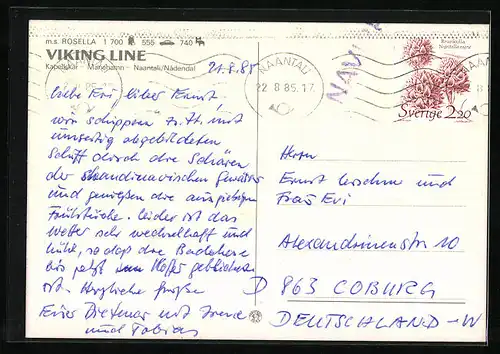 m.s. ROSELLA 1 700 555 740
VIKING LINE
Kapellskär - Mariehamn - Naantali/Nådendal
21.8.85
NAANTALI
22.8.85.17
NAV
Sverige 2.20
Liebe Evi, lieber Ernst,
wir schippern z. Zt. mit
umseitig abgebildetem
Schiff durch die Schären
der skandinavischen Gewässer
und genießen die ausgiebigen
Frühstücke. Leider ist das
Wetter sehr wechselhaft und
kühl, so daß die Badehose
bis jetzt im Koffer geblieben
ist. Herzliche Grüße
Euer Dietmar mit Irene
und Tobias
Herrn
Ernst und
Frau Evi
Alexandrinenstr. 10
D 863 COBURG
DEUTSCHLAND-W